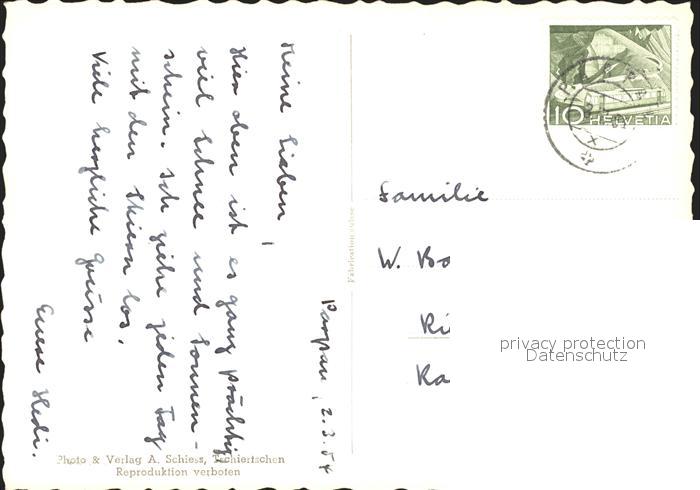 Parpan, 2.3.54
Meine Lieben,
Hier oben ist es ganz prächtig
viel Schnee und Sonnen-
schein. Ich ziehe jeden Tag
mit den Skiern los.
Viele herzliche Grüsse
Euere Hedi.
Photo & Verlag A. Schiess, Tschiertschen
Reproduktion verboten
10 HELVETIA
Familie
W. Bo
Ri
Ra
privacy protection
Datenschutz